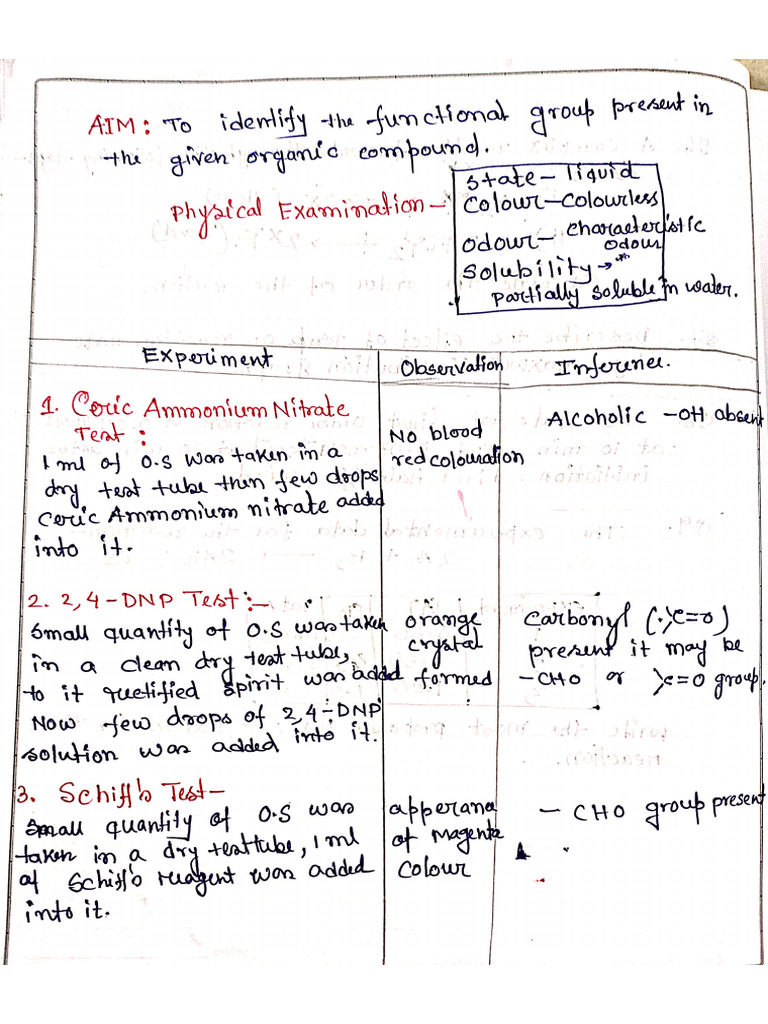 AIM: To identify the functional group present in
the given organic compound.
Physical Examination-
state- liquid
Colour-Colourless
odour- characteristic
odour
solubility→
partially soluble in water.
Experiment
Observation
Inference.
1. Ceric Ammonium Nitrate
Test:
1 ml of O.S was taken in a
dry test tube then few drops
Ceric Ammonium nitrate added
into it.
No blood
red colouration
Alcoholic -OH absent
2. 2,4-DNP Test:-
Small quantity of O.S was taken
in a clean dry test tube,
to it rectified spirit was added
Now few drops of 2,4-DNP
solution was added into it.
orange
crystal
formed
Carbonyl (>C=O)
present it may be
-CHO or >C=O group.
3. Schiff's Test-
Small quantity of O.S was
taken in a dry test tube, 1 ml
of Schiff's reagent was added
into it.
apperana
of Magenta
Colour
- CHO group present